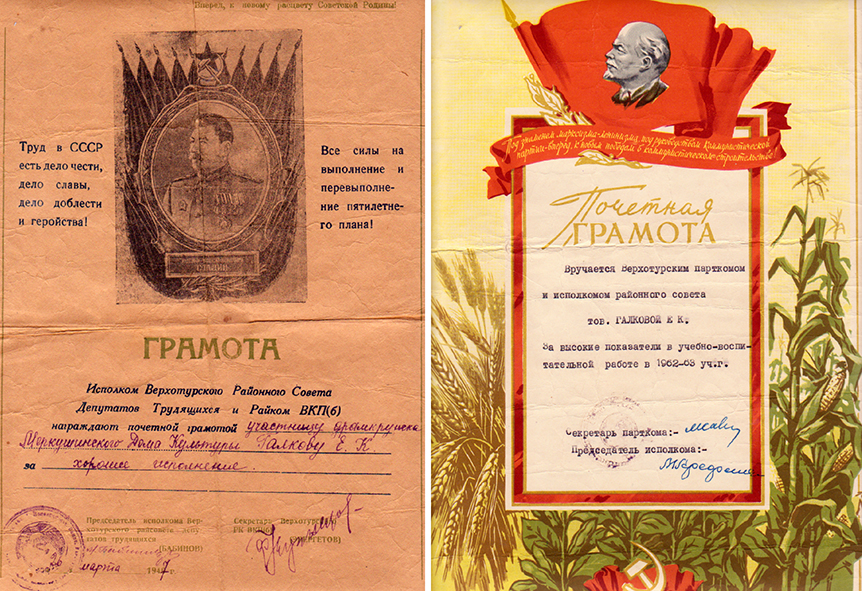 Вперед, к новому расцвету Советской Родины!
Труд в СССР
есть дело чести,
дело славы,
дело доблести
и геройства!
СТАЛИН
Все силы на
выполнение и
перевыполне-
ние пятилетне-
го плана!
ГРАМОТА
Исполком Верхотурского Районного Совета
Депутатов Трудящихся и Райком ВКП(б)
награждают почетной грамотой участницу драмкружка
Меркушинского Дома Культуры Галкову Е. К
за хорошее исполнение.
Председатель исполкома Вер-
хотурского райсовета депу-
татов трудящихся
(БАБИНОВ)
Секретарь Верхотурского
РК ВКП(б)
марта 1947 г.
Под знаменем марксизма-ленинизма, под руководством Коммунистической
партии-вперед, к новым победам в коммунистическом строительстве!
Почетная
ГРАМОТА
Вручается Верхотурским парткомом
и исполкомом районного совета
тов. ГАЛКОВОЙ Е К.
За высокие показатели в учебно-воспи-
тательной работе в 1962-63 уч.г.
Секретарь парткома:-
Председатель исполкома:-